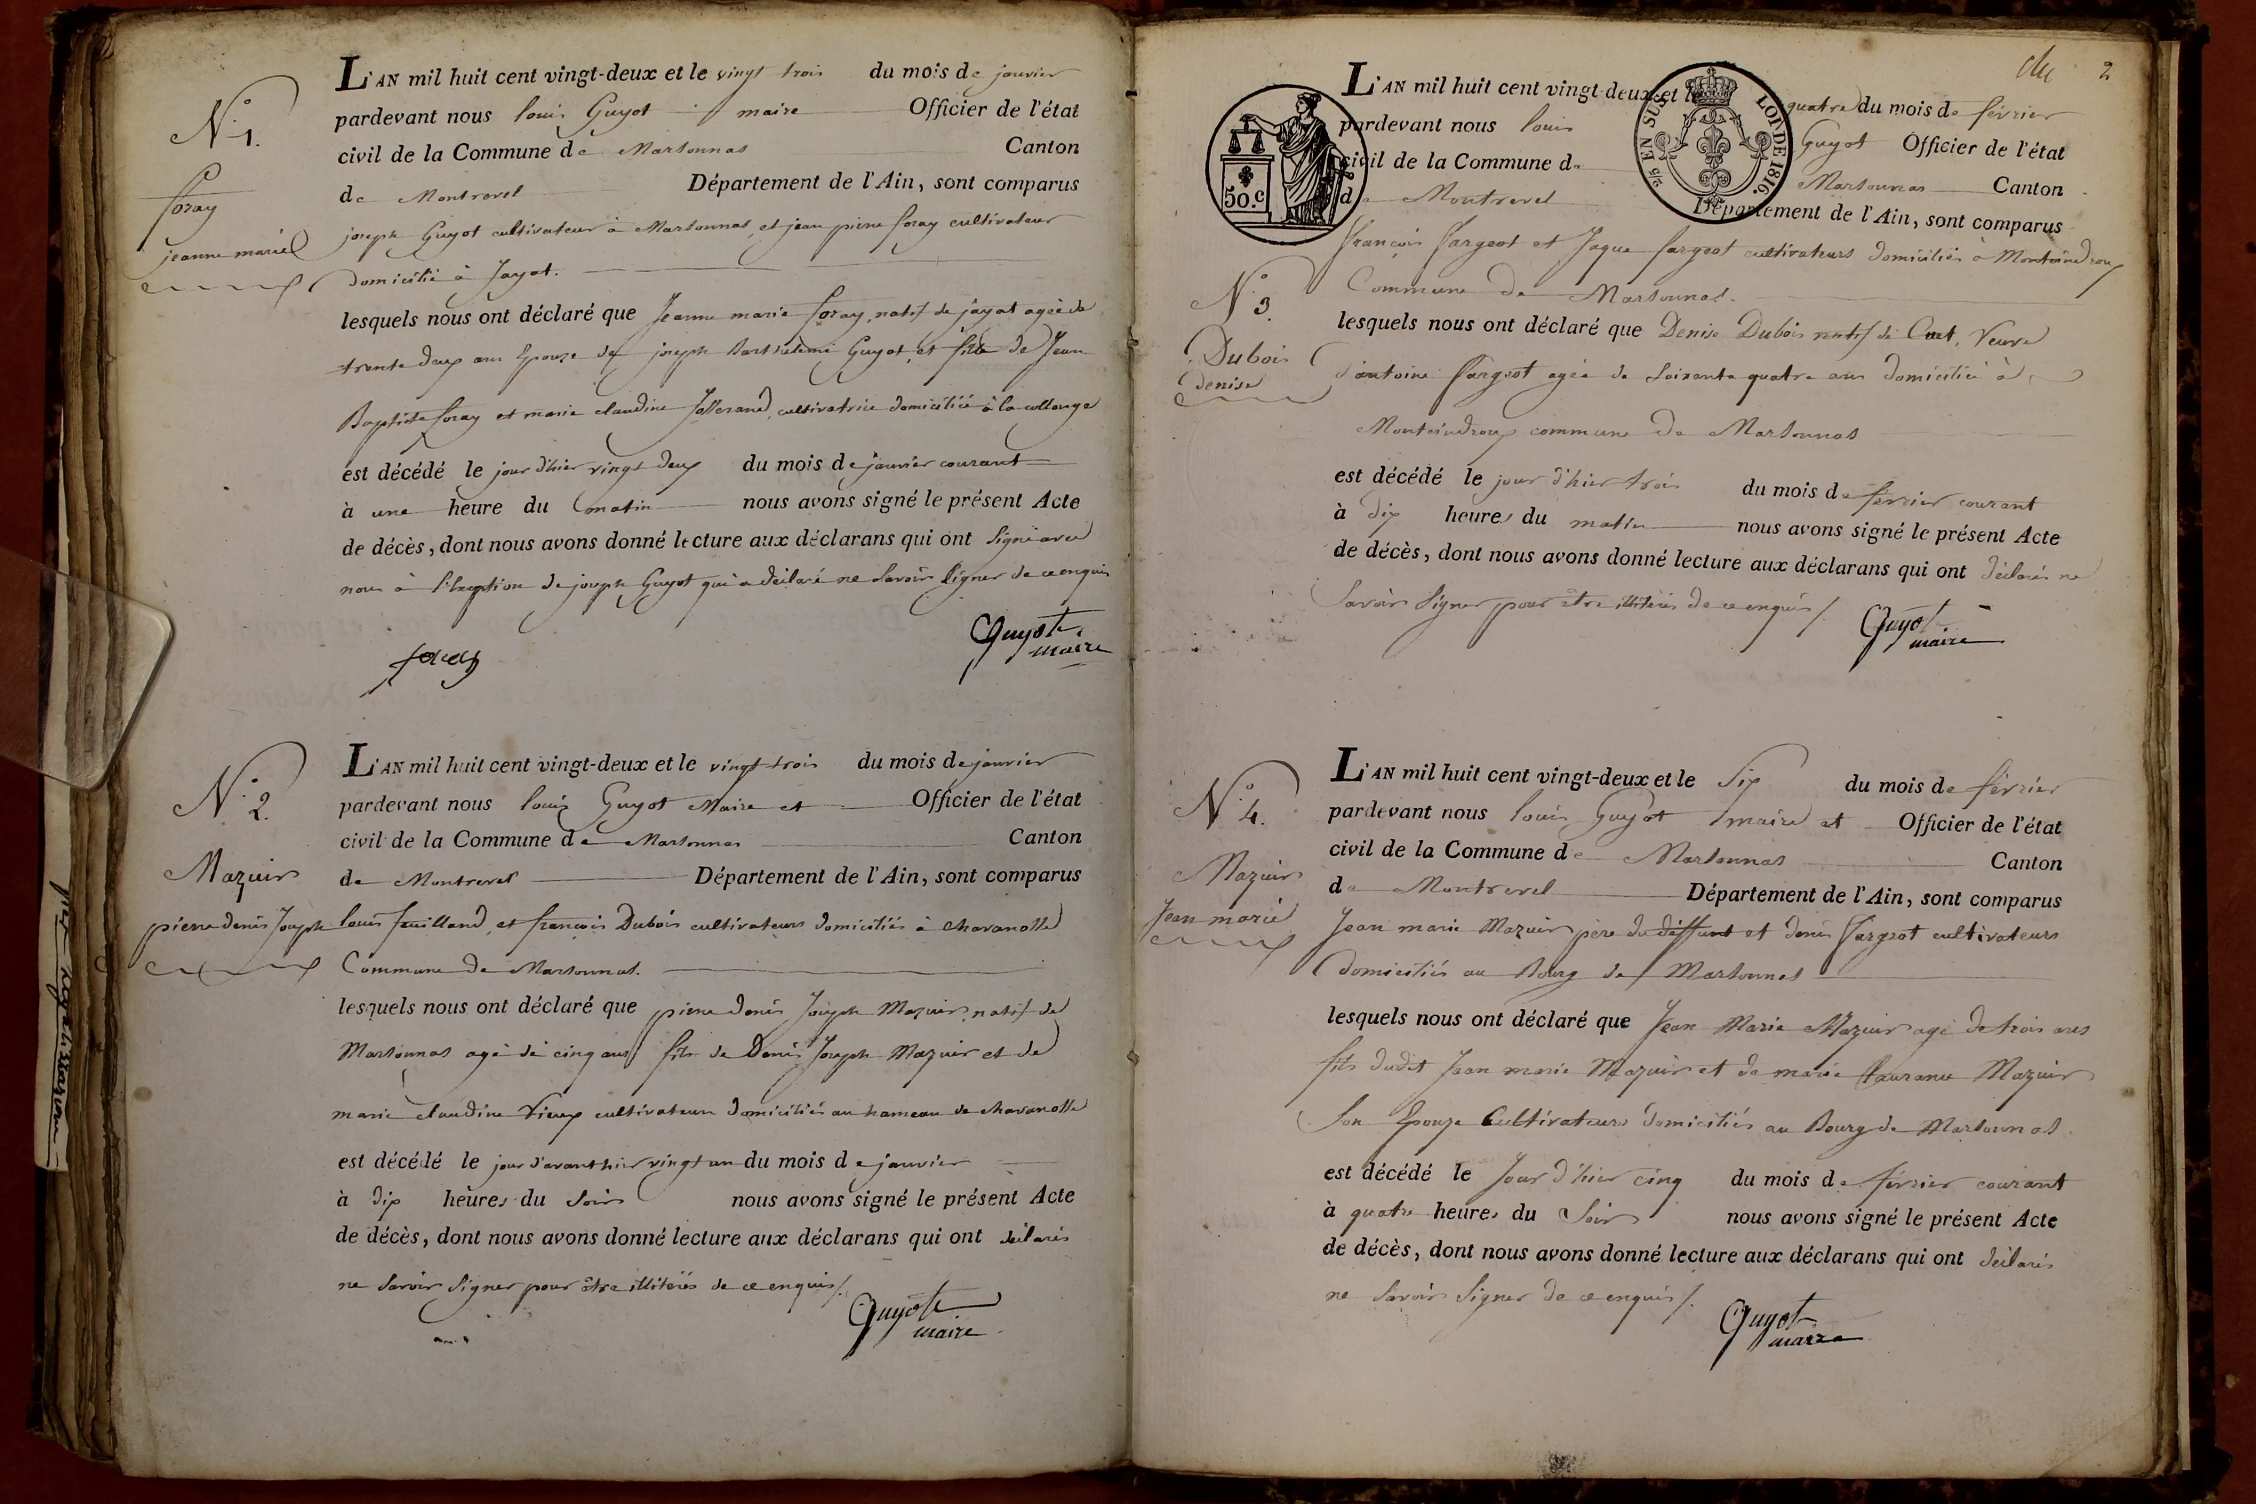 N.° 1.
foray
jeanne marie
L'AN mil huit cent vingt-deux et le vingt trois du mois de janvier
pardevant nous louis Guyot maire Officier de l'état
civil de la Commune de Marsonnas Canton
de Montrevel Département de l'Ain, sont comparus
joseph Guyot cultivateur à Marsonnas et jean pierre foray cultivateur
domicilié à Jayat.
lesquels nous ont déclaré que Jeanne marie foray, natif de jayat agée de
trente deux ans Epouse de joseph Barthelemi Guyot, et fille de Jean
Baptiste foray et marie claudine cultivatrice domiciliée à la collonge
est décédé le jour d'hier vingt deux du mois de janvier courant
à une heure du matin nous avons signé le présent Acte
de décès, dont nous avons donné lecture aux déclarans qui ont signé avec
nous à l'Exeption de joseph Guyot qui a déclaré ne Savoir Signer de ce enquis
foray
Guyot
maire
N.° 2.
Mazuir
pierre denis Joseph
L'AN mil huit cent vingt-deux et le vingt trois du mois de janvier
pardevant nous louis Guyot Maire et Officier de l'état
civil de la Commune de Marsonnas Canton
de Montrevel Département de l'Ain, sont comparus
louis feuilland, et françois Dubois cultivateurs domiciliés à chavanolle
Commune de Marsonnas.
lesquels nous ont déclaré que pierre denis Joseph Mazuir natif de
Marsonnas agé de cinq ans fils de Denis Joseph Mazuir et de
marie claudine Vieux cultivateurs domiciliés au hameau de chavanolle
est décédé le jour d'avanthier vingt un du mois de janvier
à dix heures du Soir nous avons signé le présent Acte
de décès, dont nous avons donné lecture aux déclarans qui ont déclarés
ne Savoir Signer pour être illiterés de ce enquis /.
Guyot
maire
2
50.c
2/5 EN SUS LOI DE 1816.
N.° 3.
Dubois
denise
L'AN mil huit cent vingt-deux et le quatre du mois de février
pardevant nous louis Guyot Officier de l'état
civil de la Commune de Marsonnas Canton
de Montrevel Département de l'Ain, sont comparus
françois fargeot et Jaque fargeot cultivateurs domiciliés à Montcindroux
Commune de Marsonnas.
lesquels nous ont déclaré que Denise Dubois natif de Curt, Veuve
d'antoine fargeot agée de Soixante quatre ans domiciliée à
Montcindroux commune de Marsonnas
est décédé le jour d'hier trois du mois de février courant
à dix heures du matin nous avons signé le présent Acte
de décès, dont nous avons donné lecture aux déclarans qui ont déclarés ne
Savoir Signer pour être illiterés de ce enquis /.
Guyot
maire
N.° 4.
Mazuir
Jean marie
L'AN mil huit cent vingt-deux et le Six du mois de février
pardevant nous louis Guyot maire et Officier de l'état
civil de la Commune de Marsonnas Canton
de Montrevel Département de l'Ain, sont comparus
Jean marie Mazuir père du déffunt et denis fargeot cultivateurs
domiciliés au Bourg de Marsonnas
lesquels nous ont déclaré que Jean Marie Mazuir agé de trois ans
fils dudit Jean marie Mazuir et de marie Mazuir
Son Epouze Cultivateurs domiciliés au Bourg de Marsonnas.
est décédé le Jour d'hier cinq du mois de février courant
à quatre heures du Soir nous avons signé le présent Acte
de décès, dont nous avons donné lecture aux déclarans qui ont déclarés
ne Savoir Signer de ce enquis /.
Guyot
maire